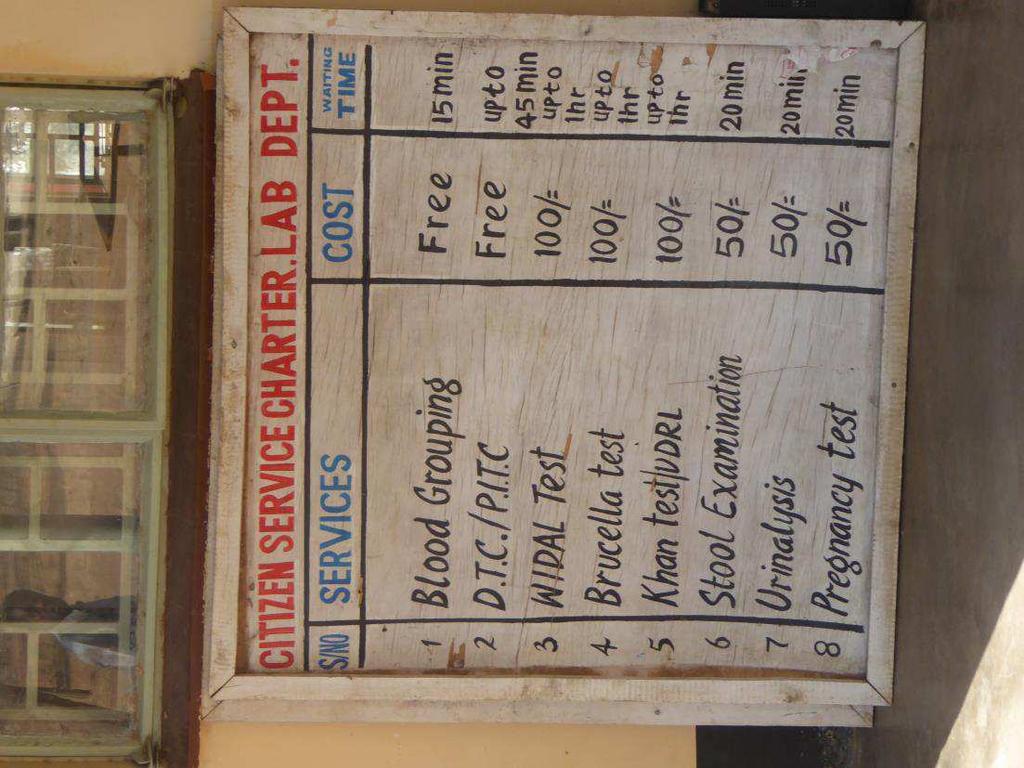 CITIZEN SERVICE CHARTER. LAB DEPT.
S/NO SERVICES COST WAITING TIME
1 Blood Grouping Free 15 min
2 D.T.C./P.I.T.C Free upto 45 min
3 WIDAL Test 100/= upto 1hr
4 Brucella test 100/= upto 1hr
5 Khan test/VDRL 100/= upto 1hr
6 Stool Examination 50/= 20 min
7 Urinalysis 50/= 20 min
8 Pregnancy test 50/= 20 min